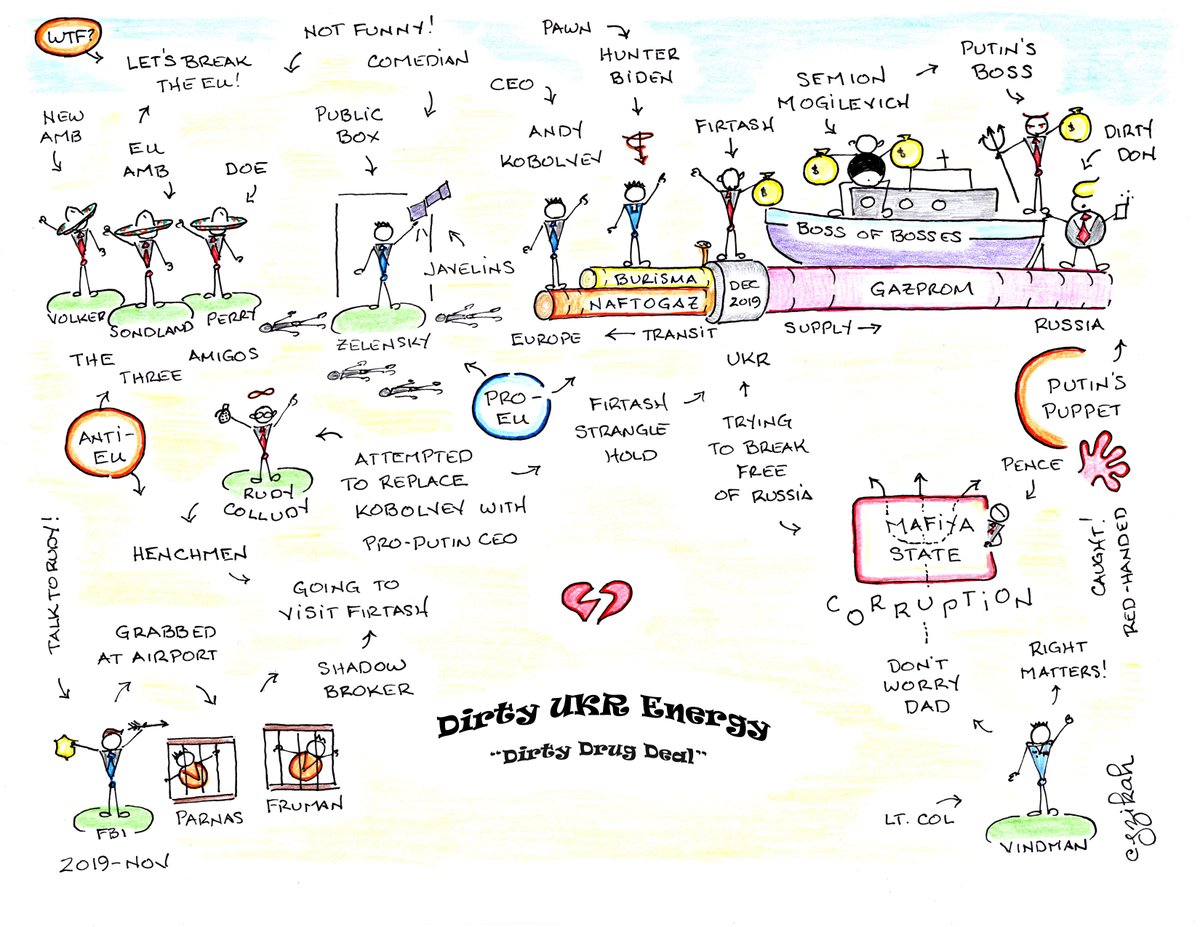 WTF?
LET'S BREAK
THE EU!
NOT FUNNY!
COMEDIAN
PAWN
HUNTER
BIDEN
CEO
ANDY
KOBOLYEV
FIRTASH
SEMION
MOGILEVICH
PUTIN'S
BOSS
DIRTY
DON
NEW
AMB
EU
AMB
DOE
PUBLIC
BOX
JAVELINS
BOSS OF BOSSES
BURISMA
NAFTOGAZ
DEC
2019
GAZPROM
VOLKER
SONDLAND
PERRY
ZELENSKY
EUROPE
TRANSIT
SUPPLY
RUSSIA
THE
THREE
AMIGOS
UKR
ANTI-
EU
PRO-
EU
FIRTASH
STRANGLE
HOLD
TRYING
TO BREAK
FREE
OF RUSSIA
PUTIN'S
PUPPET
PENCE
CAUGHT!
RED-HANDED
RUDY
COLLUDY
ATTEMPTED
TO REPLACE
KOBOLYEV WITH
PRO-PUTIN CEO
MAFIYA
STATE
CORRUPTION
HENCHMEN
TALK TO RUDY!
GOING TO
VISIT FIRTASH
GRABBED
AT AIRPORT
SHADOW
BROKER
DON'T
WORRY
DAD
RIGHT
MATTERS!
Dirty UKR Energy
"Dirty Drug Deal"
FBI
PARNAS
FRUMAN
2019-NOV
LT. COL
VINDMAN
$
$
$
$